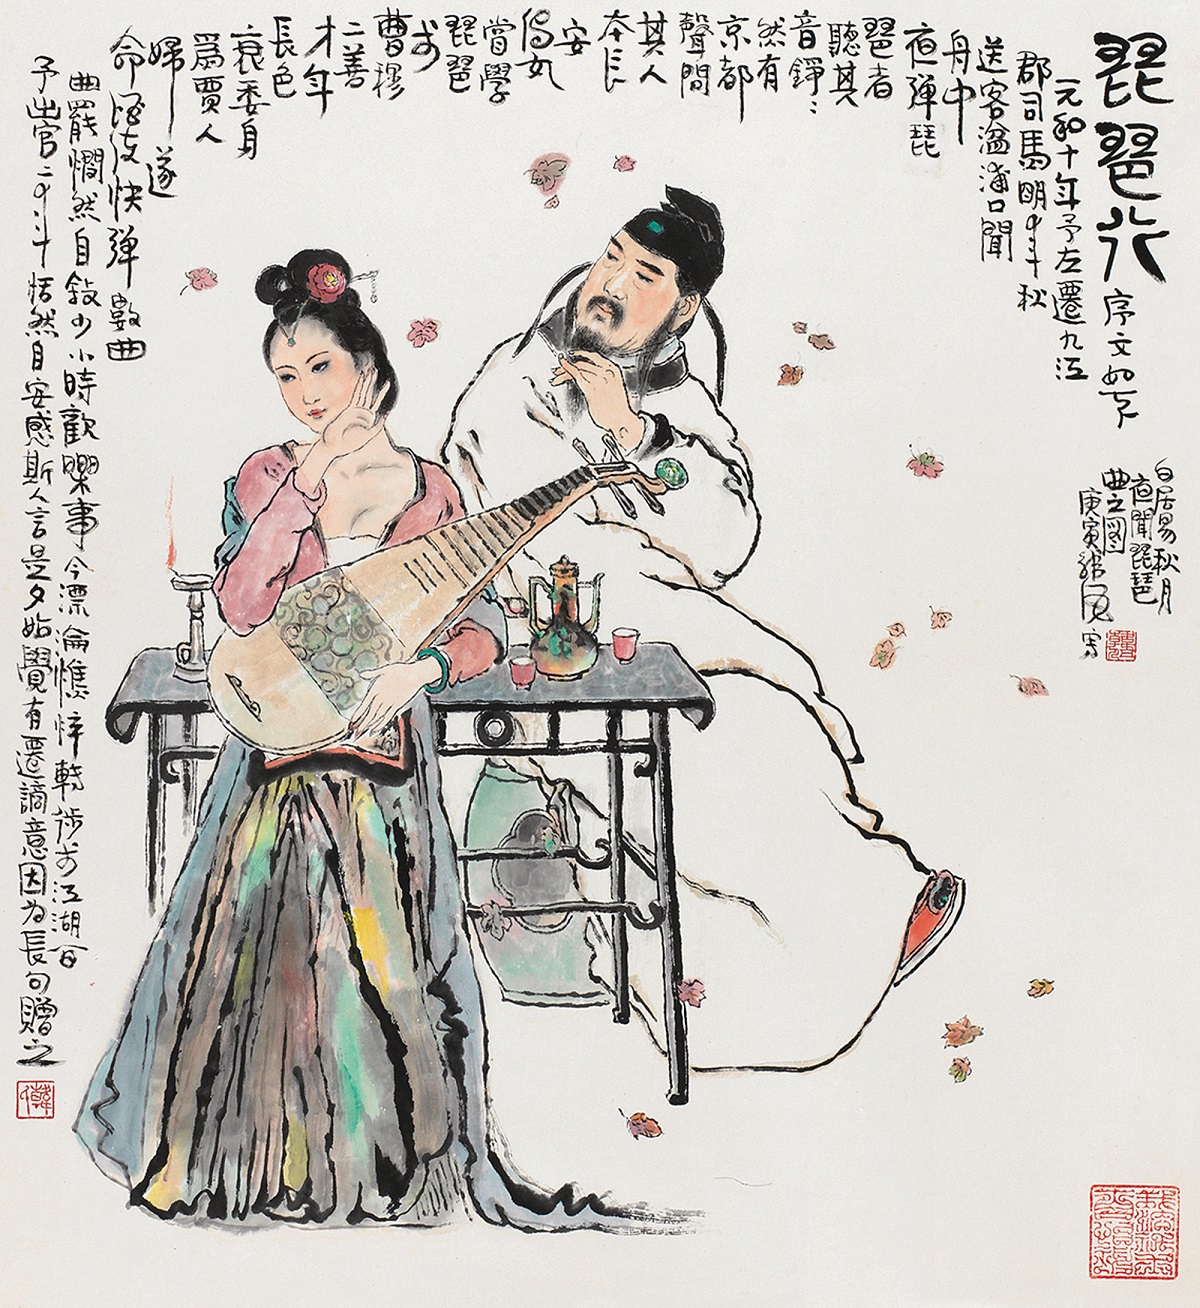 琵琶行 序文如下
元和十年予左遷九江
郡司馬明年秋
送客湓浦口聞
舟中
夜彈琵
琶者
聽其
音錚〻
然有
京都
聲問
其人
本長
安
倡女
嘗學
琵琶
於
曹穆
二善
才年
長色
衰委身
爲賈人
婦遂
命酒使快彈數曲
曲罷憫然自敘少小時歡樂事今漂淪憔悴轉徙於江湖間
予出官二年恬然自安感斯人言是夕始覺有遷謫意因为長句贈之
白居易秋月
夜聞琵琶
曲之圖
庚寅